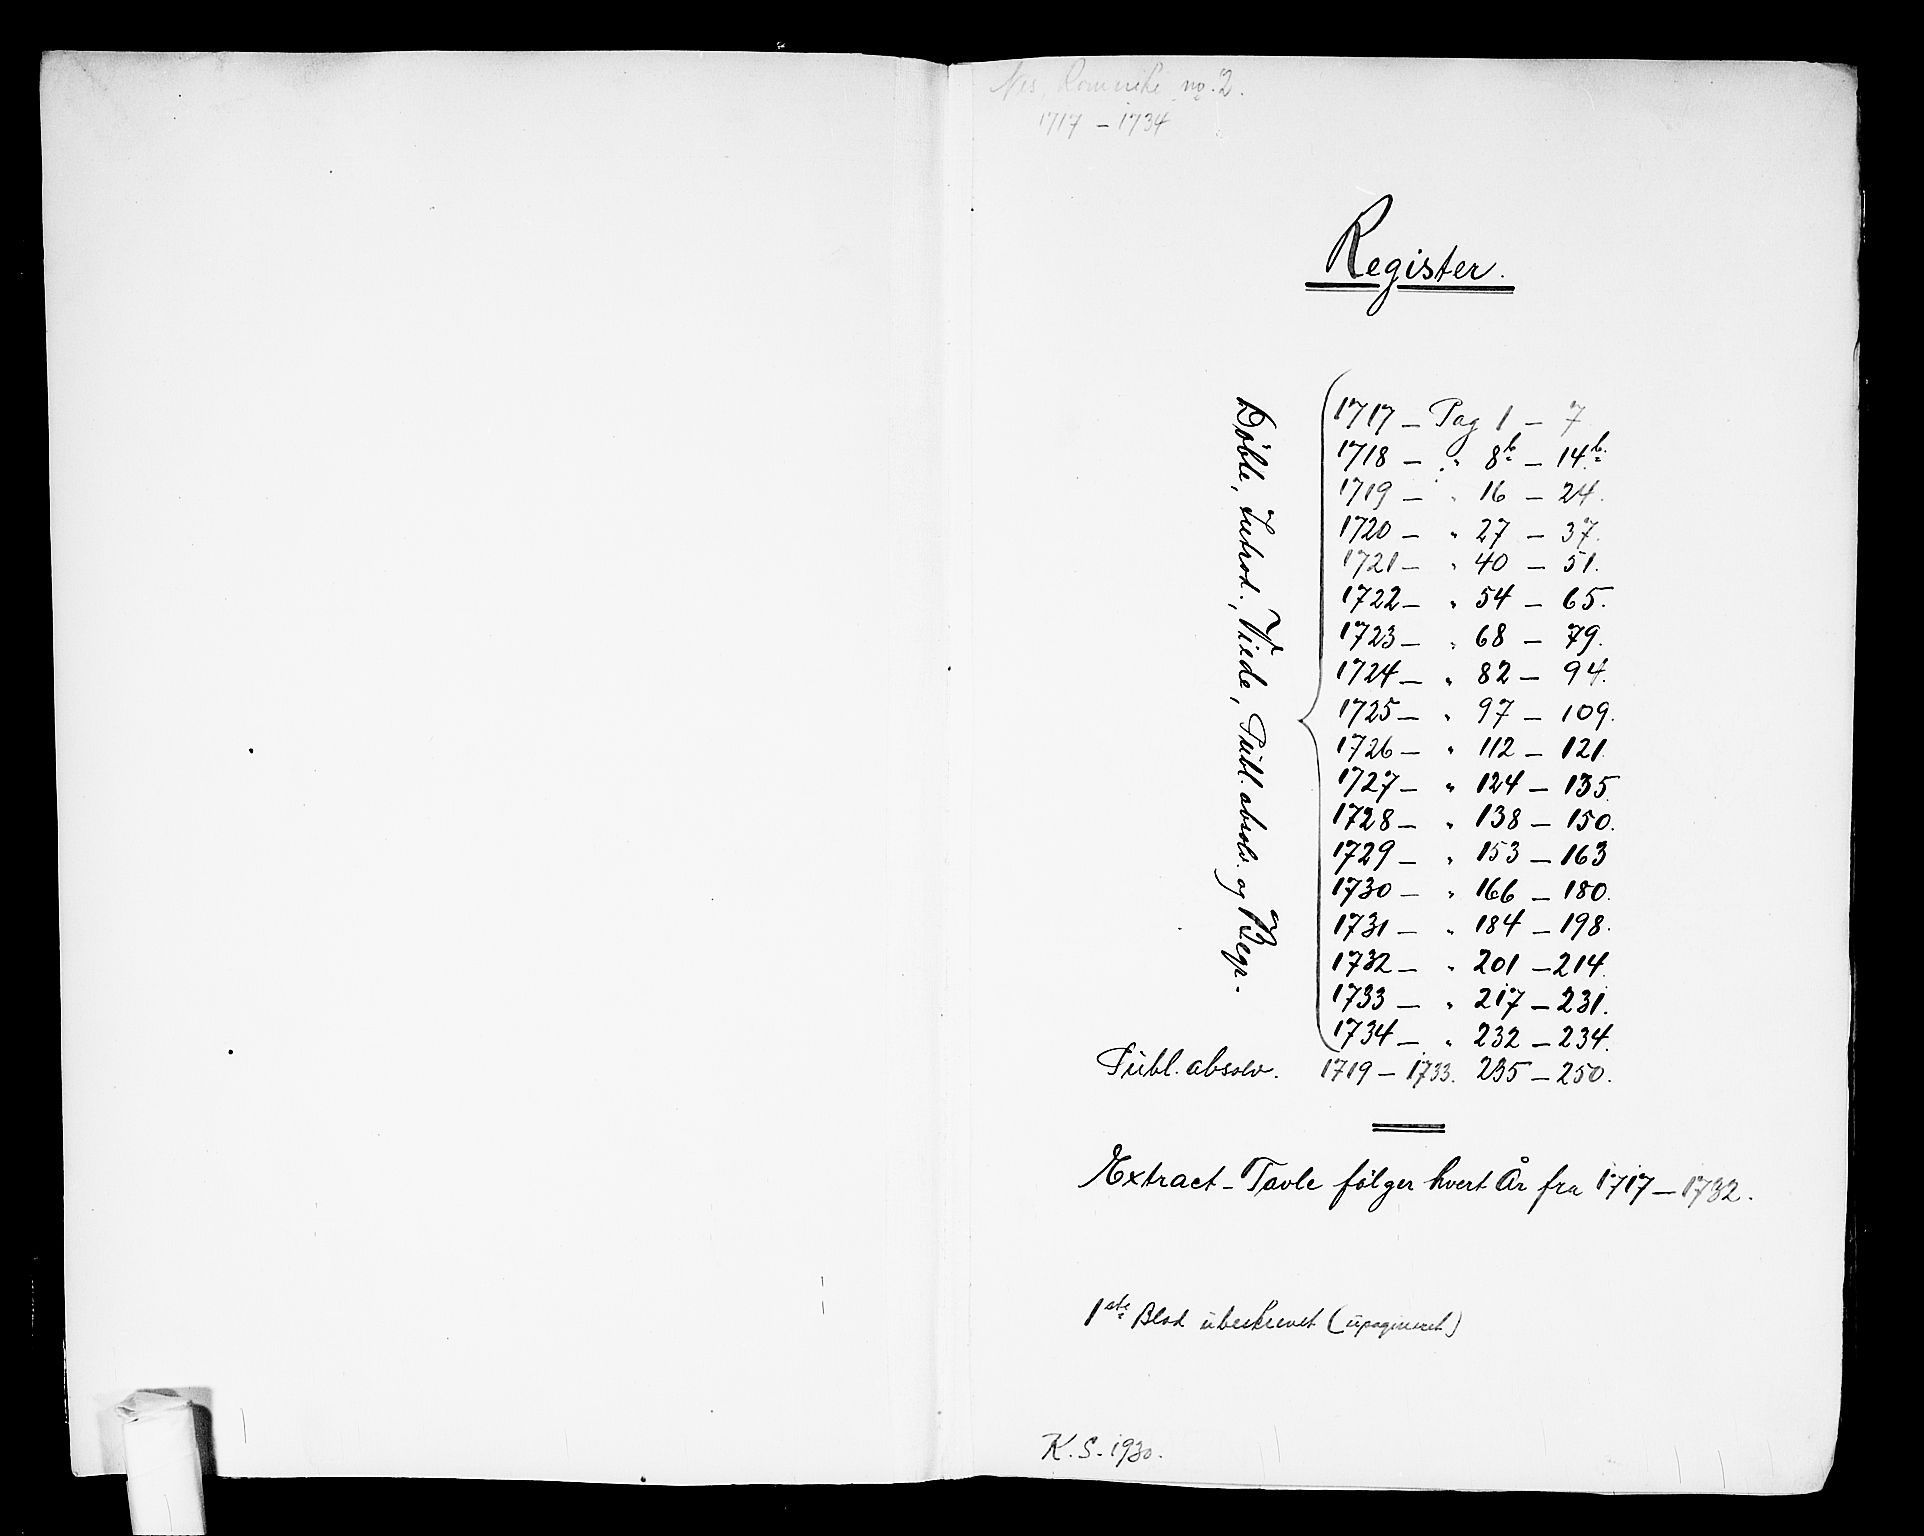 Nes, Romerike no. 2.
1717 – 1734
Register.
Døbte, Introd., Viede, Publ. absolv. og Begr.
1717 – Pag 1 – 7
1718 – " 8b – 14b.
1719 – " 16 – 24.
1720 – " 27 – 37.
1721 – " 40 – 51.
1722 – " 54 – 65.
1723 – " 68 – 79.
1724 – " 82 – 94.
1725 – " 97 – 109.
1726 – " 112 – 121.
1727 – " 124 – 135.
1728 – " 138 – 150.
1729 – " 153 – 163
1730 – " 166 – 180.
1731 – " 184 – 198.
1732 – " 201 – 214.
1733 – " 217 – 231.
1734 – " 232 – 234.
Publ. absolv. 1719 – 1733. 235 – 250.
Extract – Tavle følger hvert År fra 1717 – 1732.
1ste Blad ubeskrevet (upagineret)
K. S. 1930.